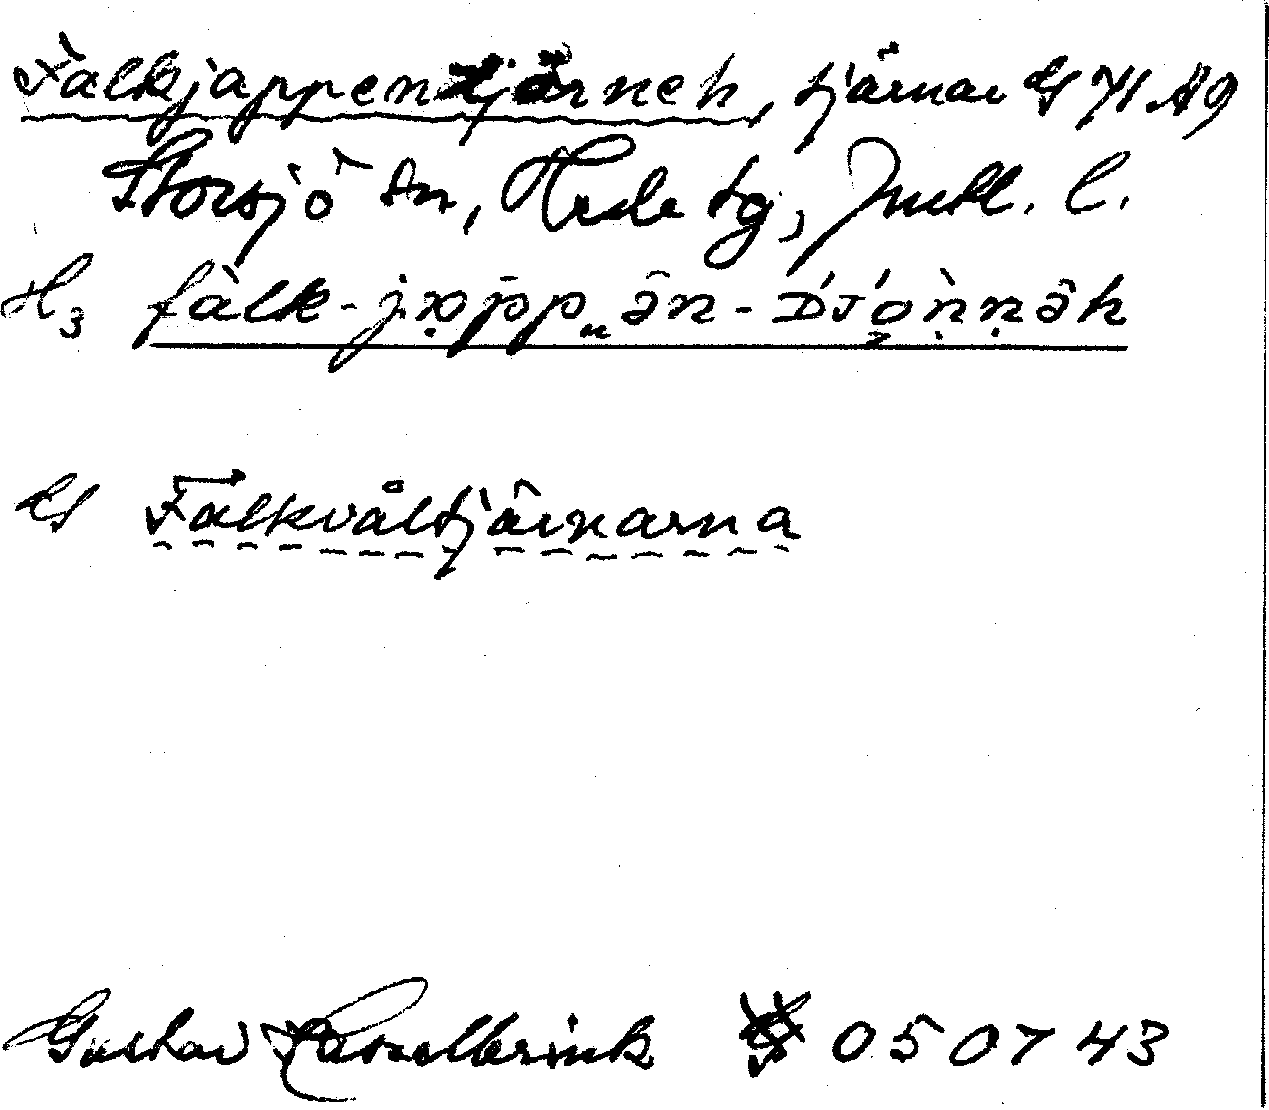 Falkjappentjärneh, tjärnar GS 71 A9
Storsjö sn, Hede tg, Jmtl. l.
H3 fàlk-jappän-DJónnäh
GS Falkvåltjärnarna
Gustav Hasselbrink 050743